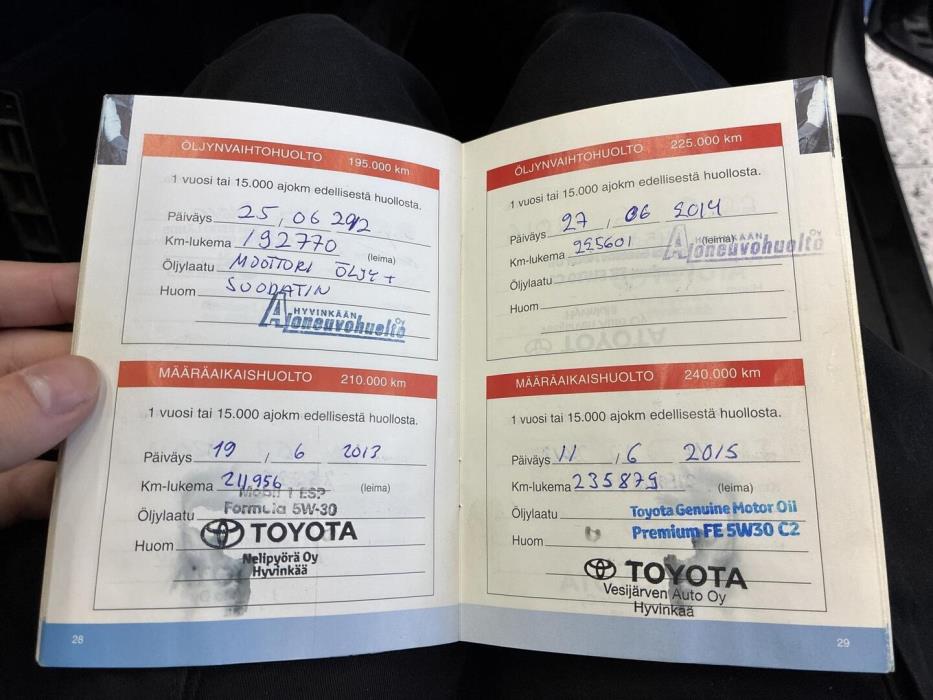 ÖLJYNVAIHTOHUOLTO 195.000 km
1 vuosi tai 15.000 ajokm edellisestä huollosta.
Päiväys 25 , 06 2012
Km-lukema 192770
(leima)
Öljylaatu MOOTTORI ÖLJY +
Huom SUODATIN
HYVINKÄÄN
Ajoneuvohuolto
MÄÄRÄAIKAISHUOLTO 210.000 km
1 vuosi tai 15.000 ajokm edellisestä huollosta.
Päiväys 19 , 6 2013
Km-lukema 211956
(leima)
Mobil 1 ESP
Öljylaatu Formula 5W-30
Huom TOYOTA
Nelipyörä Oy
Hyvinkää
28
ÖLJYNVAIHTOHUOLTO 225.000 km
1 vuosi tai 15.000 ajokm edellisestä huollosta.
Päiväys 27 , 06 2014
Km-lukema 225601 (leima)
HYVINKÄÄN Oy
Ajoneuvohuolto
Öljylaatu
Huom
MÄÄRÄAIKAISHUOLTO 240.000 km
1 vuosi tai 15.000 ajokm edellisestä huollosta.
Päiväys 11 , 6 2015
Km-lukema 235879
(leima)
Öljylaatu Toyota Genuine Motor Oil
Huom Premium FE 5W30 C2
TOYOTA
Vesijärven Auto Oy
Hyvinkää
29